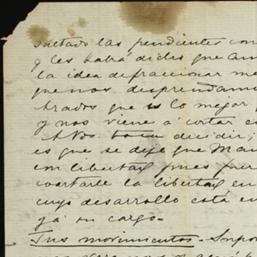 sultado las pendientes con
y les habrá dicho que am
la idea de fraccionar me
que nos desprendami
trados que es lo mejor p
y nos viene á cortar e
decidir;
es que se deje que Man
con libertad, pues pre
cortarle la libertad en
cuyo desarrollo está en
gá su cargo.
Sus movimientos.-Impo